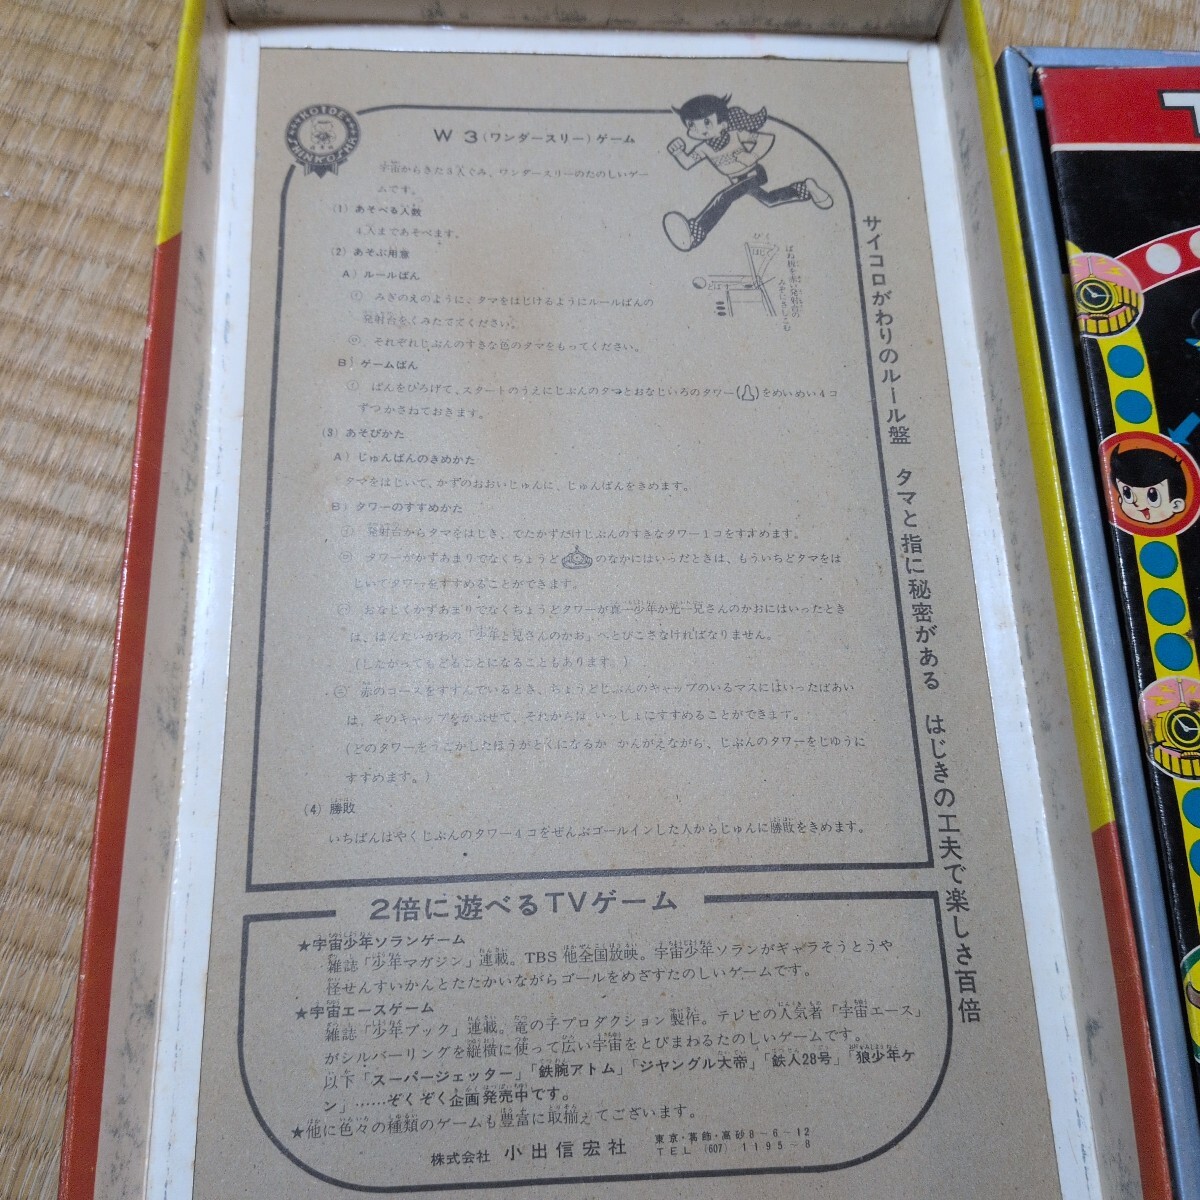 W3(ワンダースリー)ゲーム
宇宙からきた3人ぐみ、ワンダースリーのたのしいゲー
ムです。
(1) あそべる人数
4人まであそべます。
(2) あそぶ用意
A) ルールばん
㋑ みぎのえのように、タマをはじけるようにルールばんの
発射台をくみたててください。
㋺ それぞれじぶんのすきな色のタマをもってください。
B) ゲームばん
㋑ ばんをひろげて、スタートのうえにじぶんのタマとおなじいろのタワー( )をめいめい4コ
ずつかさねておきます。
(3) あそびかた
A) じゅんばんのきめかた
タマをはじいて、かずのおおいじゅんに、じゅんばんをきめます。
B) タワーのすすめかた
㋑ 発射台からタマをはじき、でたかずだけじぶんのすきなタワー1コをすすめます。
㋺ タワーがかずあまりでなくちょうど のなかにはいったときは、もういちどタマをは
じいてタワーをすすめることができます。
㋩ おなじくかずあまりでなくちょうどタワーが真一少年か光一兄さんのかおにはいったとき
は、はんたいがわの「少年と兄さんのかお」へとびこさなければなりません。
(したがってもどることになることもあります。)
㋥ 赤のコースをすすんでいるとき、ちょうどじぶんのキャップのいるマスにはいったばあい
は、そのキャップをかぶせて、それからは、いっしょにすすめることができます。
(どのタワーをうごかしたほうがとくになるか かんがえながら、じぶんのタワーをじゆうに
すすめます。)
(4) 勝敗
いちばんはやくじぶんのタワー4コをぜんぶゴールインした人からじゅんに勝敗をきめます。
サイコロがわりのルール盤 タマと指に秘密がある はじきの工夫で楽しさ百倍
2倍に遊べるTVゲーム
★宇宙少年ソランゲーム
雑誌「少年マガジン」連載。TBS他全国放映。宇宙少年ソランがギャラそうとうや
怪せんすいかんとたたかいながらゴールをめざすたのしいゲームです。
★宇宙エースゲーム
雑誌「少年ブック」連載。竜の子プロダクション製作。テレビの人気者「宇宙エース」
がシルバーリングを縦横に使って広い宇宙をとびまわるたのしいゲームです。
以下「スーパージェッター」「鉄腕アトム」「ジヤングル大帝」「鉄人28号」「狼少年ケ
ン」……ぞくぞく企画発売中です。
★他に色々の種類のゲームも豊富に取揃えてございます。
株式会社 小出信宏社 東京・葛飾・高砂8-6-12
TEL (607) 1195-8